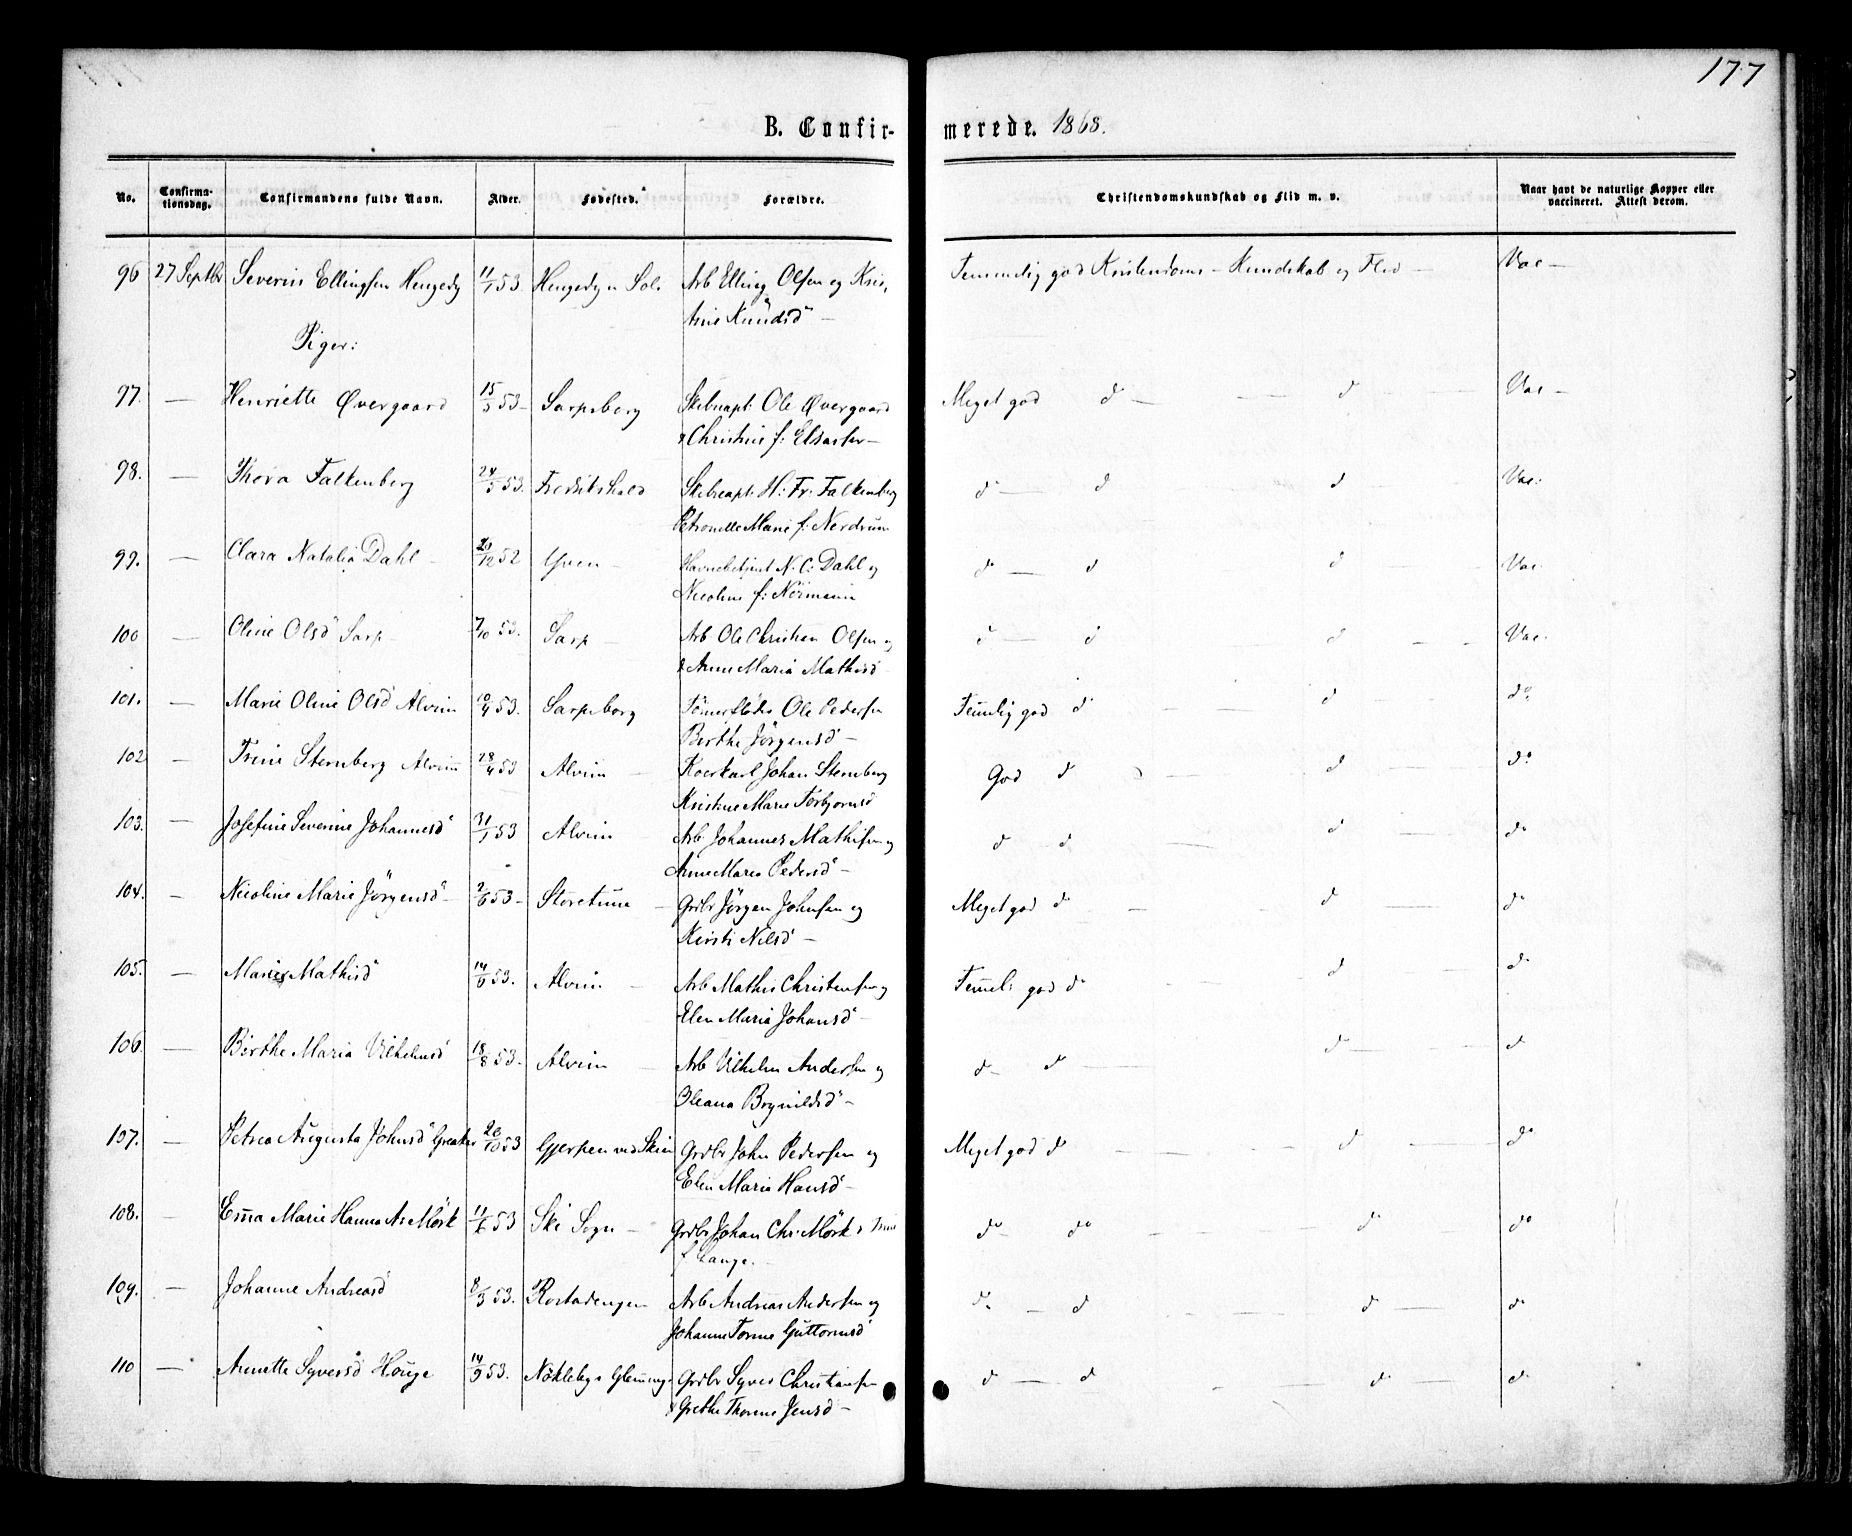 177
B. Confir- merede. 1868.
No. Confirma-tionsdag. Confirmandens fulde Navn. Alder. Fødested. Forældre. Christendomskundskab og Flid m. v. Naar havt de naturlige Kopper eller vaccineret. Attest derom.
96 27 Septbr Severin Ellingsen Hengedy 11/1 53. Hengedy Arb Elling Olsen og Temmelig god Kristendoms-Kundskab og Flid — Vac —
Knudsd —
Piger:
97. — Henriette Øvergaard 15/5 53 — Sarpsborg Skibscapt: Ole Øvergaard Meget god d — d — Vac —
& Christine f: Elsaster —
98. — Thora Falkenberg 24/5 53. Fredrikshald Skibscapt: H: Fr: Falkenberg d — d d Vac:
Petronelle Marie f: Nordrum
99. — Clara Natalia Dahl — 20/12 52 Yven — Havnebetjent N. C: Dahl og d — d d Vac.
Nicoline f: Normann
100 — Oline Olsd Sarp — 7/10 53. Sarp — Arb Ole Christian Olsen og d — d d Vac.
& Anne Maria Mathisd
101. — Marie Oline Olsd Alvim 10/4 53. Sarpsborg Ole Pedersen Temlig god d d do
Berthe Jörgensd —
102 — Trine Sternberg Alvim 28/4 53 Alvim — Johan Sternberg God d d do
Kristine Marie Torbjornsd
103. — Josefine Severine Johannesd 31/1 53 Alvim Arb Johannes Mathisen og d d d do
Anne Maria Pedersd —
104. — Nicoline Marie Jörgensd — 2/6 53 — Storetune — Grdbr Jörgen Johnsen og Meget god d — d — do
Kirsti Nilsd —
105. — Marie Mathisd 14/6 53. Alvim — Arb Mathis Christensen og Temel: god d d do
Elen Maria Johansd —
106. — Birthe Maria Vilhelmsd 18/8 53. Alvim — Arb Vilhelm Andersen og d — d — d — d
Oleana Brynildsd —
107. — Petrea Augusta Johnsd Greaker 20/10 53 Gjerpen ved Skien Grdbr John Pedersen og Meget god d — d — do
Elen Maria Hansd —
108. — Emma Marie Hanna As Mörk 11/6 53 Ski Sogn — Grdbr Johan Chr: Mörk & Trine do do — d do
f Lange. —
109. — Johanne Andreasd 8/3 53. Rostadengen Arb Andreas Andersen og d — d — d — do
Johanne Torine Guttormsd
110 — Annette Syversd Houge 14/9 53. Nökleby i Glemminge Grdbr Syver Christiansen d d — d — d
& Grethe Thorine Jensd —